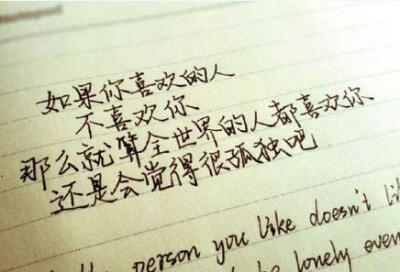 如果你喜欢的人
不喜欢你
那么就算全世界的人都喜欢你
还是会觉得很孤独吧
person you like doesn't
be lonely even